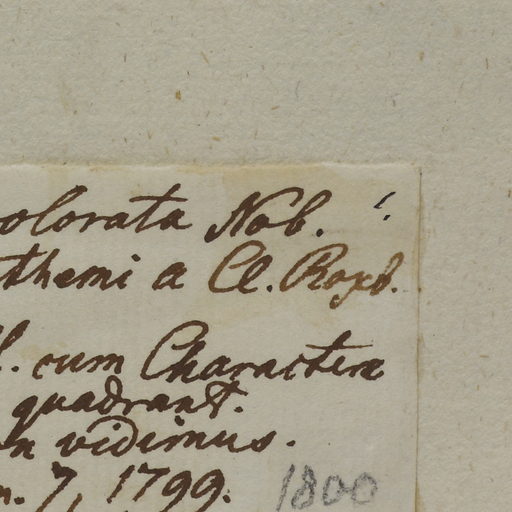 olorata Nob.
themi a Cl. Roxb.
l. cum Charactere
quadrant.
n vidimus.
n. 7, 1799. 1800